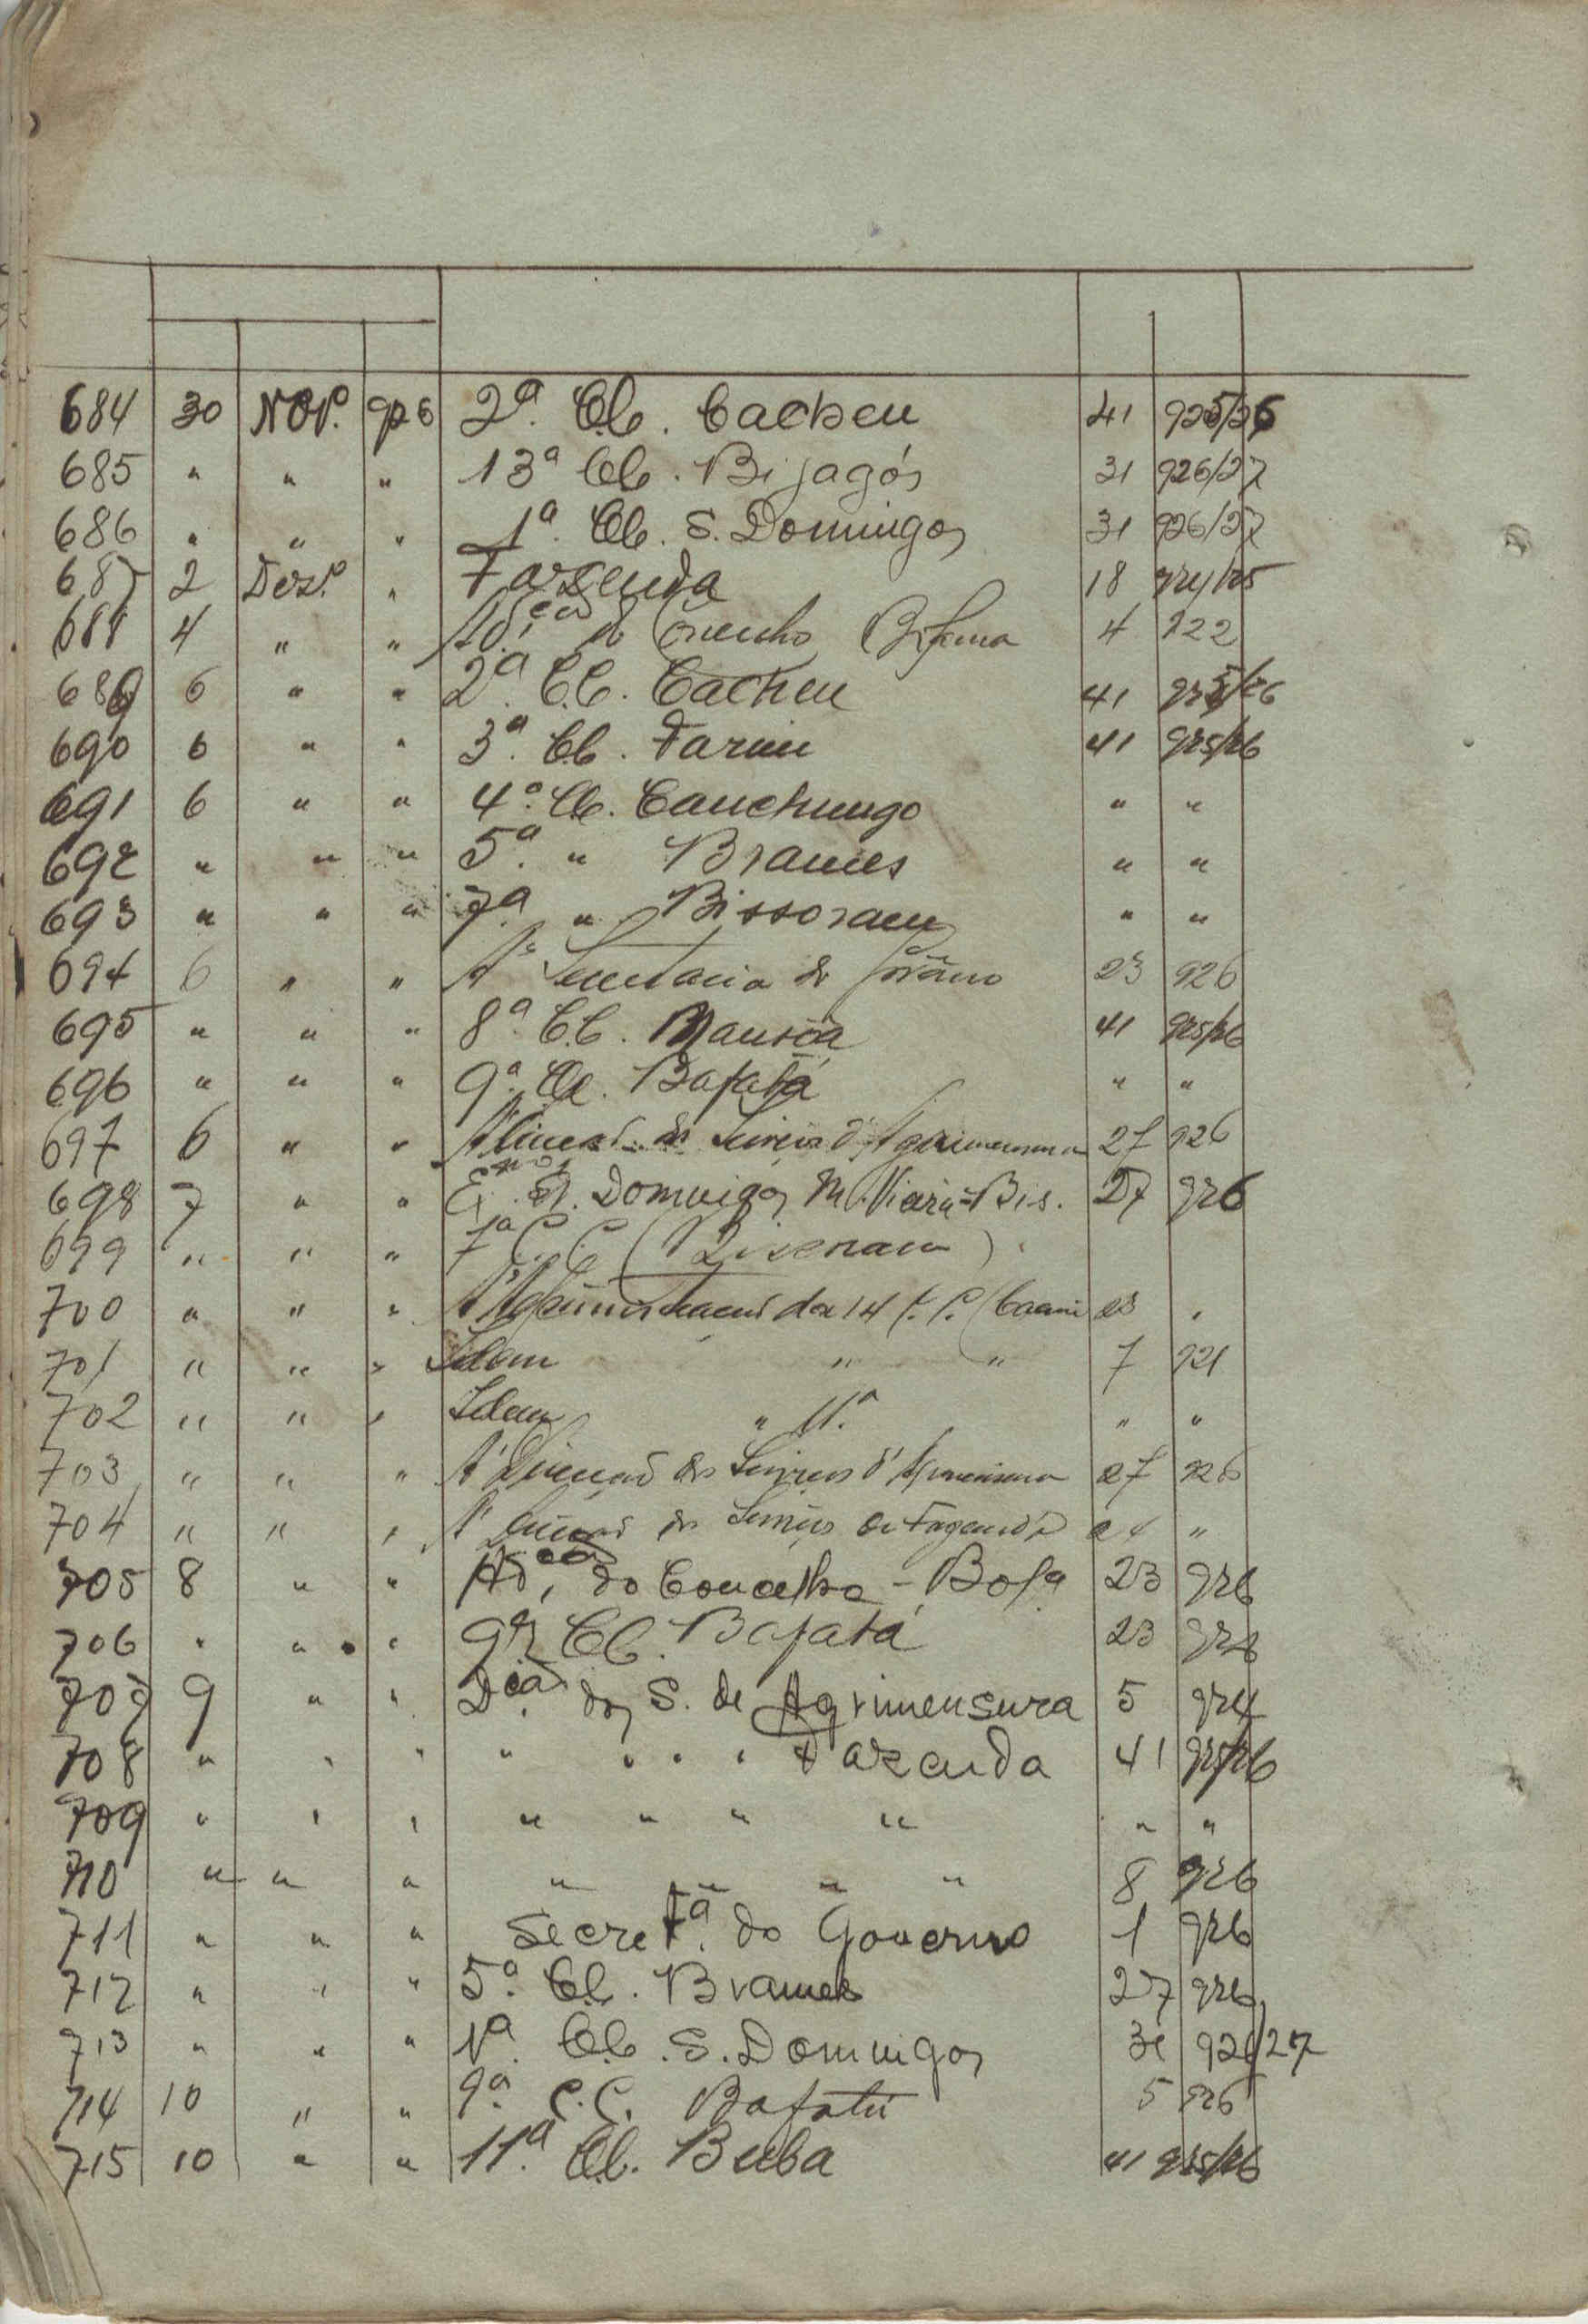 684 30 Nov.º 926 2ª. C.C. Cacheu 41 925/26
685 " " " 13ª C.C. Bijagós 31 926/27
686 " " " 1ª. C.C. S. Domingos 31 926/27
687 2 Dez.º " Fazenda 18 924/25
688 4 " " Ad.ção do Concelho Bolama 4 922
689 6 " " 2ª. C.C. Cacheu 41 925/26
690 6 " " 3ª. C.C. Farim 41 925/26
691 6 " " 4ª. C.C. Canchungo " "
692 " " " 5ª. " Brames " "
693 " " " 7ª. " Bissoram " "
694 6 " " Á Secretaria do 23 926
695 " " " 8ª. C.C. Mansôa 41 925/26
696 " " " 9ª. C.C. Bafatá " "
697 6 " " d'Agrimensura 27 926
698 7 " " Domingos M. Vieira = Bis. 27 926
699 " " " 7ª C.C. (Bissoram)
700 " " " da 14 C.C. 23 "
701 " " " Idem " " 7 921
702 " " " Idem " 11.ª " "
703 " " " Á Direcção dos Serviços d'Agrimensura 27 926
704 " " " Á Direcção dos Serviços de Fazenda "
705 8 " " Ad.ção do Concelho - Bol.ª 23 926
706 " " " 9ª C.C. Bafatá 23 926
707 9 " " D.ção dos S. de Agrimensura 5 924
708 " " " " " " " Fazenda 41 925/26
709 " " " " " " " " "
710 " " " " " " " 8 926
711 " " " Secret.ª do Governo 1 926
712 " " " 5ª. C.C. Brames 27 926
713 " " " 1ª. C.C. S. Domingos 31 926/27
714 10 " " 9ª. C.C. Bafatá 5 926
715 10 " " 11ª. C.C. Buba 41 925/26